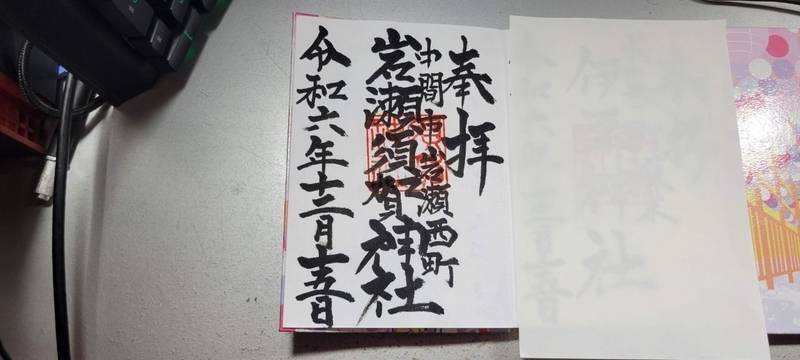 奉拝
中間市岩瀬西町
岩瀬須賀神社
令和六年十二月十五日